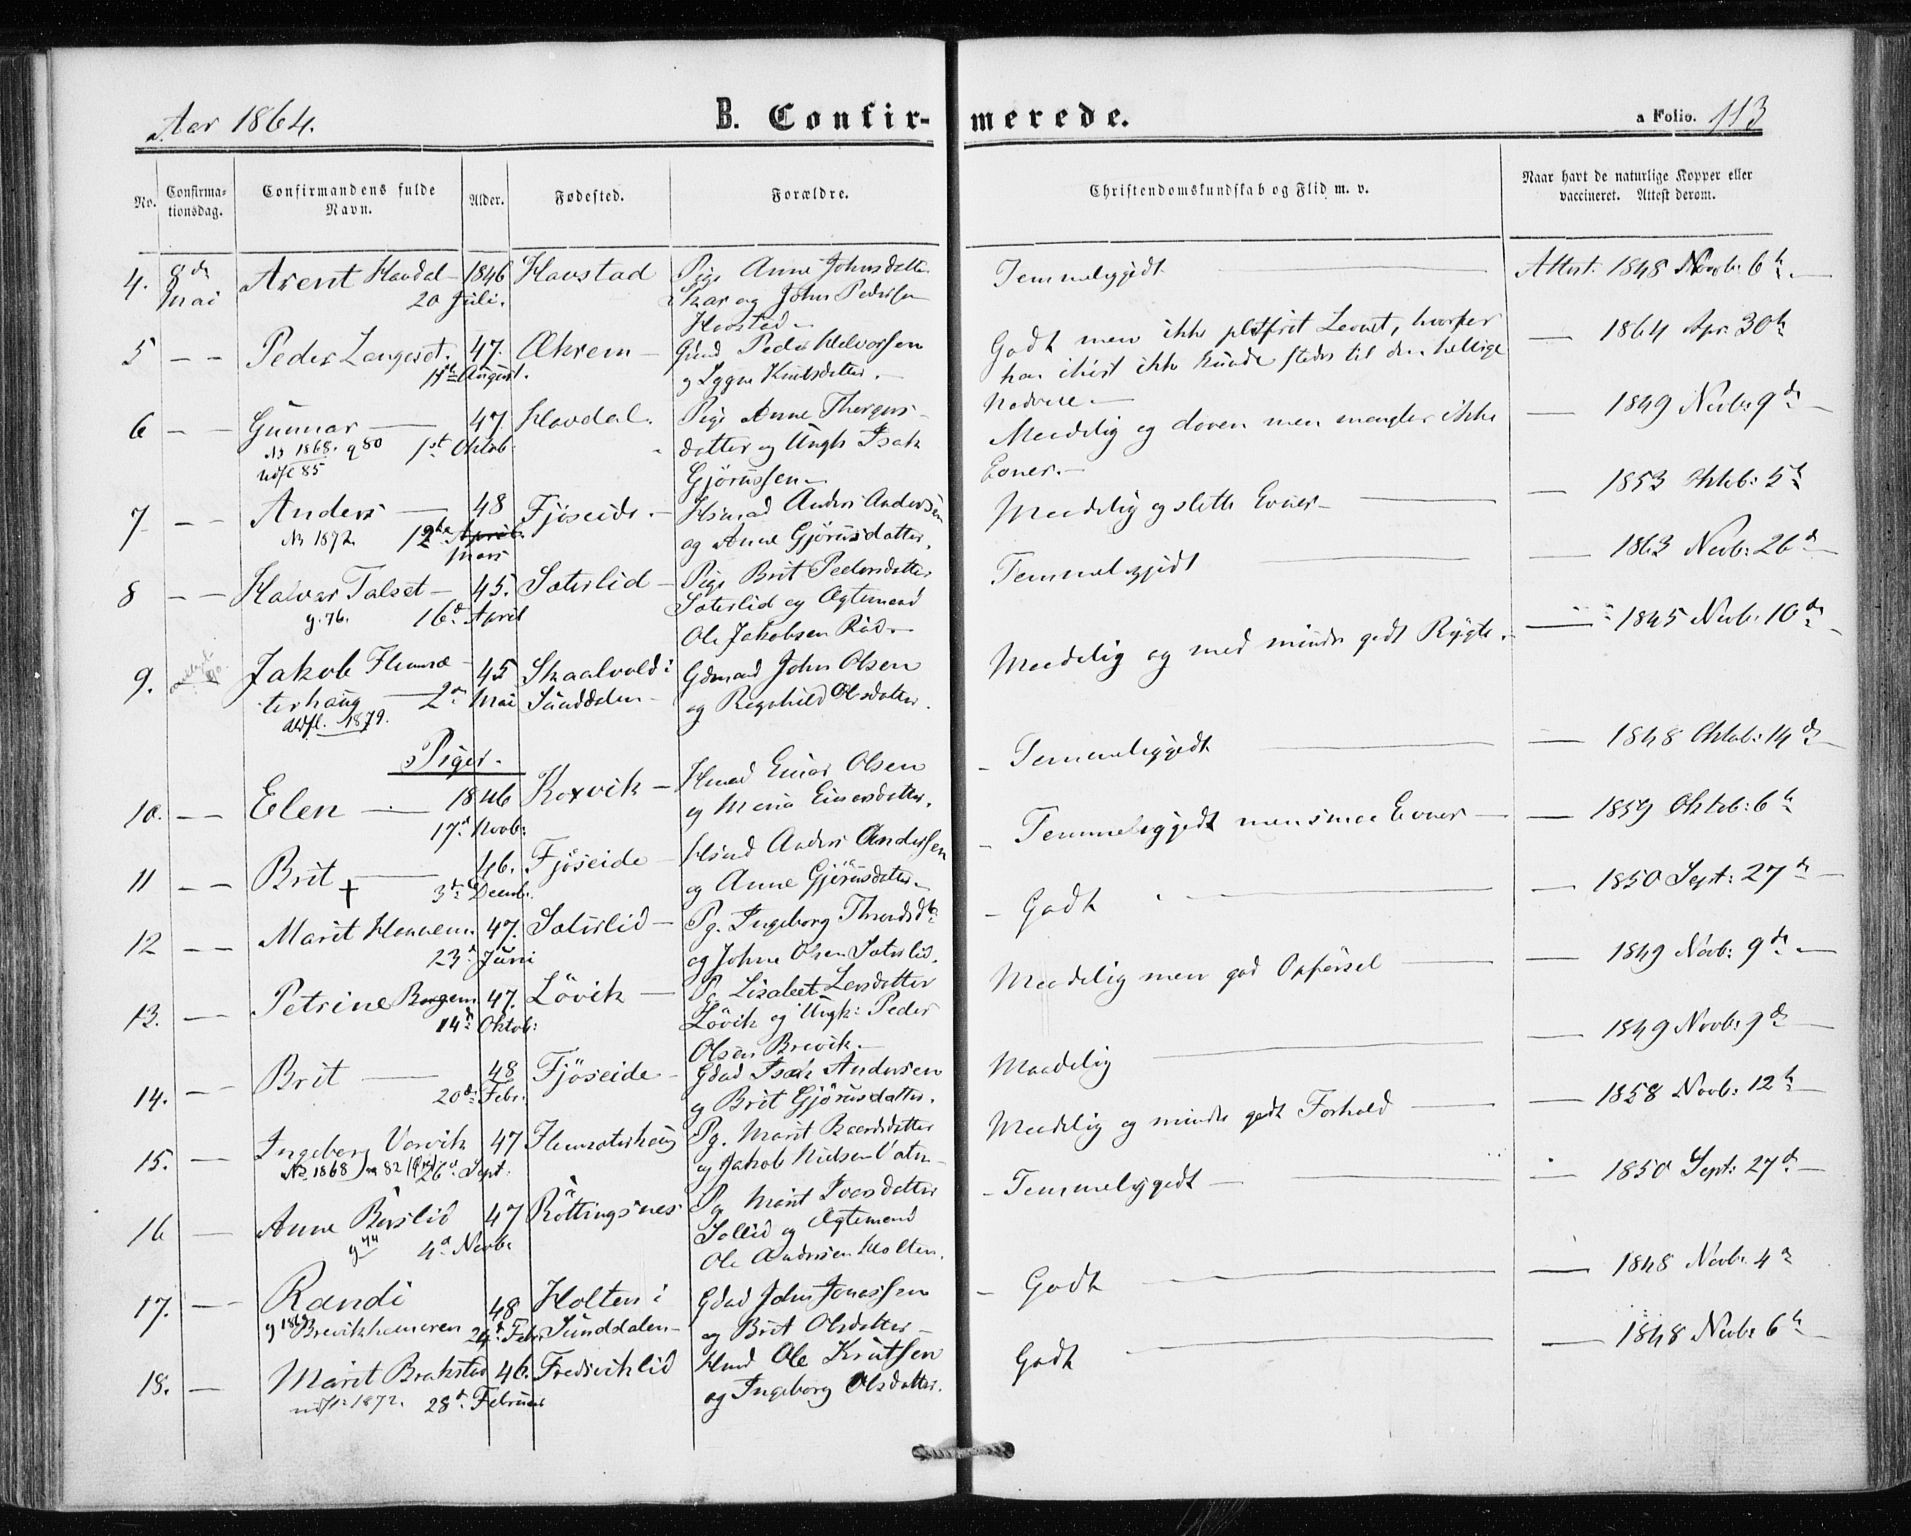 Aar 1864.
B. Confir- merede.
a Folio. 113
No.
Confirma-
tionsdag.
Confirmandens fulde
Navn.
Alder.
Fødested.
Forældre.
Christendomskundskab og Flid m. v.
Naar havt de naturlige Kopper eller
vaccineret. Attest derom.
4. 8de Arent Havdal 1846 Havstad Pige Anne Johnsdatter Temmeliggodt Attest. 1848 Novb: 6te
Mai 20 Juli. Skar og John Pedersen
Havstad
5 Peder Langeset. 47. Ækrem Gmd Peder Halvorsen Godt men ikke pletfrit Levnet, hvorfor 1864 Apr. 30te
11te August. og Sygni Knutsdatter. han ikke kunde stedes til den hellige
Nadvere
6 Gunnar 47 Havdal. Pige Anne Thorgus- Maadelig og doven men mangler ikke 1849 Novb: 9de
No 1868. g 80 1st Oktob. datter og Ungk Isak Evner.
udfl 85 Gjørussen
7 Anders 48 Fjøseide Hsmad Anders Andersen Maadelig og slette Evner 1853 Oktob: 5te
No 1872. 12te April og Anne Gjørusdatter.
Mars
8 Halvor Talset 45. Sæterlid Pige Brit Pedersdatter Temmeliggodt 1863 Novb: 26de
g. 76. 16de April Sæterlid og Ægtemand
Ole Jakobsen Rød
9. Jakob Flemsæ- 45 Skaalvold i Gdmand John Olsen Maadelig og med mindre godt Rygte. 1845 Novb. 10de
terhaug 2den Mai Sunddalen og Ragnhild Olsdatter.
udfl. 1879.
Piger.
10. Elen 1846 Roxvik Hmad Einar Olsen Temmeliggodt 1848 Oktob: 14de
17de Novb: og Maria Einarsdatter.
11 Brit 46. Fjøseide Hsmd Anders Anderssen Temmeliggodt men smaa Evner 1859 Oktob: 6te
3de Decemb. og Anne Gjørusdatter
12 Marit Hennem. 47. Sæterlid Pg. Ingeborg Throndsdtr Godt 1850 Sept: 27de
23de Juni og Johne Olsen Sæterlid.
13. Petrine Bergem 47. Løvik P. Lisabet Larsdatter Maadelig men god Opførsel 1849 Novb: 9de
14de Oktob: Løvik og Ungk: Peder
Olsen Brevik
14. Brit 48 Fjøseide Gdad Isak Andersen Maadelig 1849 Novb: 9de
20de Febr. og Brit Gjørusdatter.
15. Ingeborg Varvik 47 Flemsæterhaug Pg. Marit Baardsdatter Maadelig og mindre godt Forhold 1858 Novb: 12te
No 1868 82 26de Sept. og Jakob Nielsen Vatn
16 Anne Børslid 47 Røttingsnes Pg Marit Ivarsdatter Temmeliggodt 1850 Sept: 27de
g 44 4de Novb. Sollid og Ægtemand
Ole Andersen Holten.
17. Randi 48 Holten i Gdad John Jonassen Godt 1848 Novb: 4de
g 1869 Brevikhemeren 24de Febr Sunddalen og Brit Olsdatter
18. Marit Brakstad 46. Fredsviklid Hmd Ole Knutsen Godt 1848 Novb: 6te
udfl 1872. 28de Februar og Ingeborg Olsdatter.